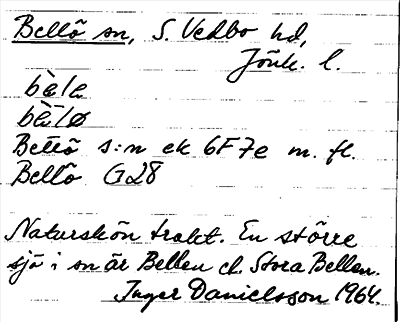 Bellö sn, S. Vedbo hd,
Jönk. l.
bè̀le
bè̀lø
Bellö s:n ek 6F7e m. fl.
Bellö G28
Naturskön trakt. En större
sjö i sn är Bellen el. Stora Bellen.
Inger Danielsson 1964.